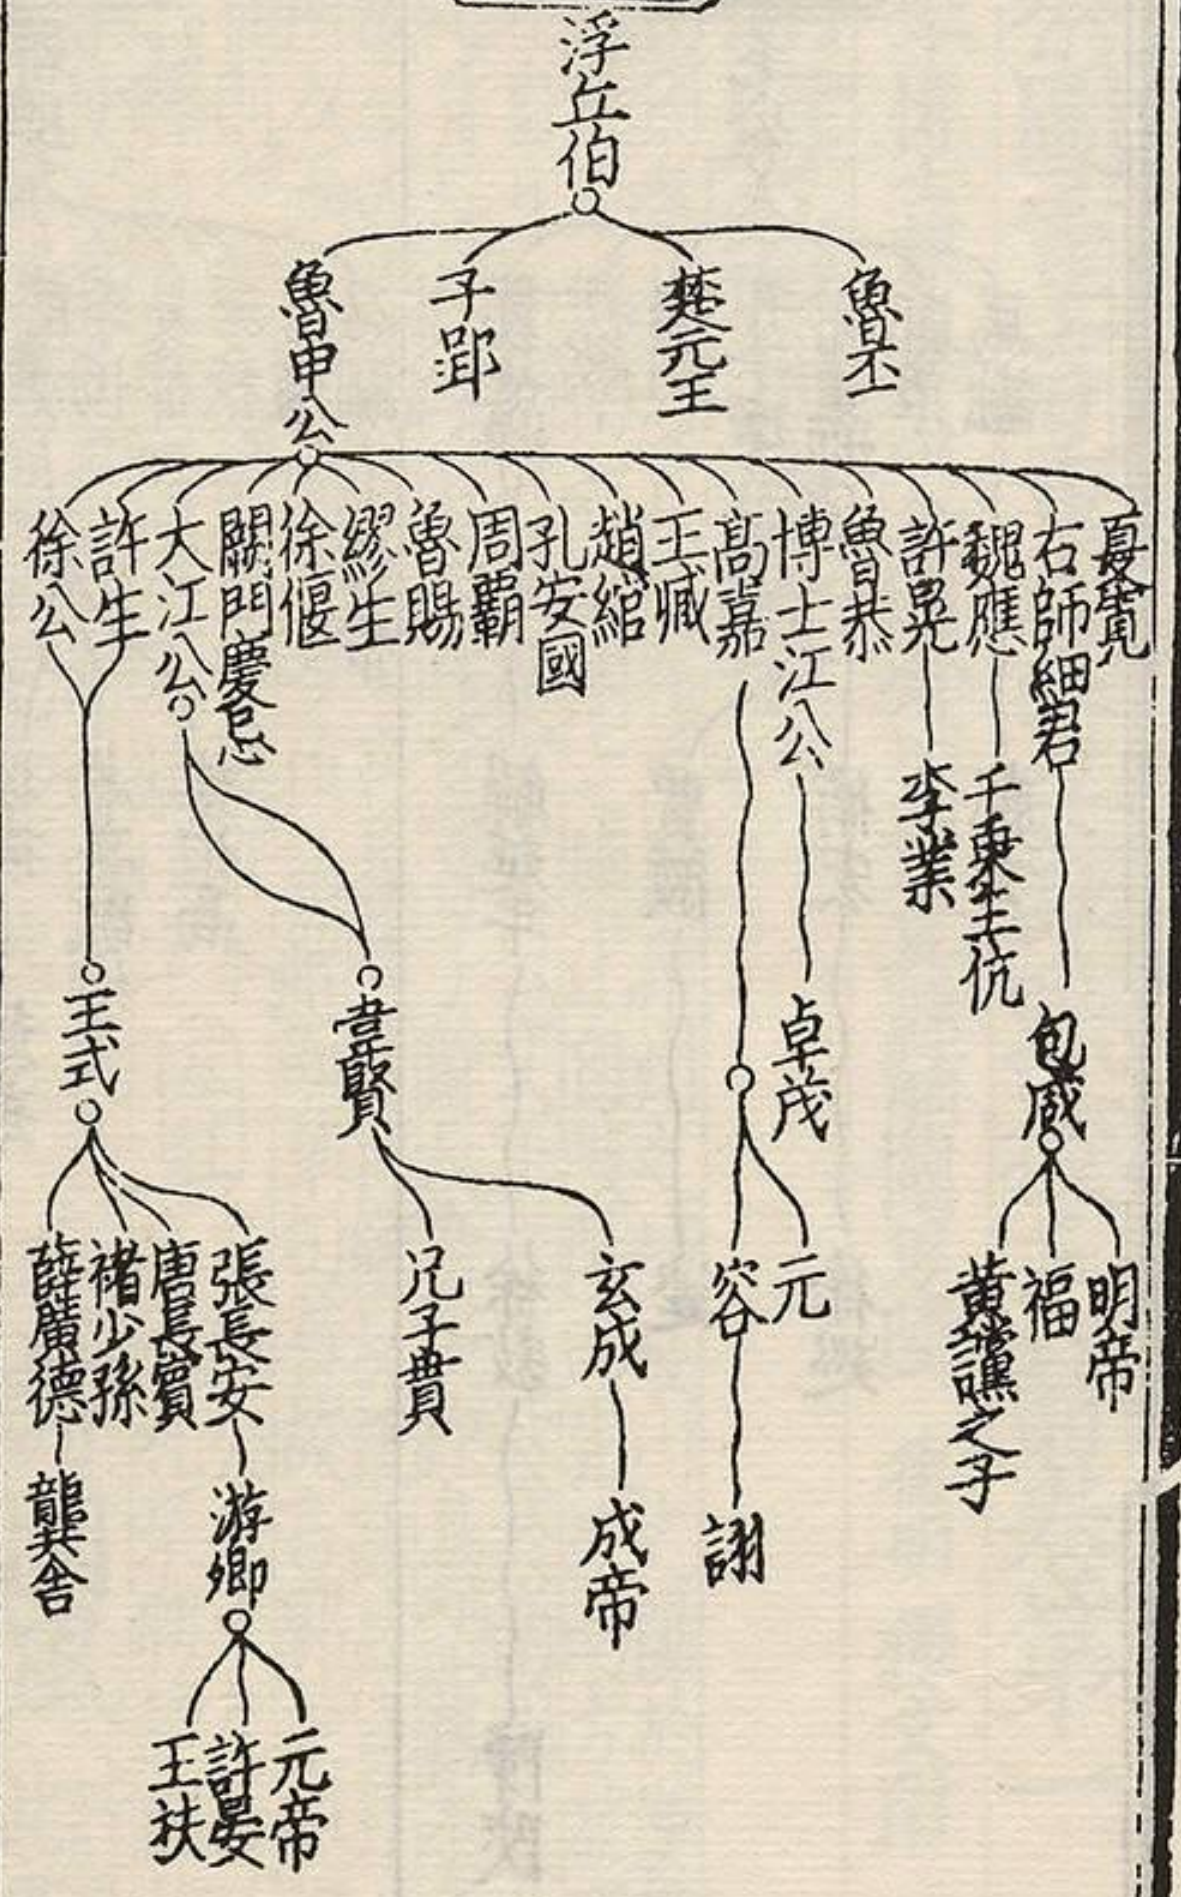 浮丘伯
魯丕
楚元王
子郢
魯申公
夏寬
右師細君
魏應
許晃
魯恭
博士江公
高嘉
王臧
趙綰
孔安國
周霸
魯賜
繆生
徐偃
闕門慶忌
大江公
許生
徐公
李業
千乘王伉
包咸
卓茂
韋賢
王式
明帝
福
黃讜之子
元
容
玄成
兄子賞
張長安
唐長賓
褚少孫
薛廣德
詡
成帝
游卿
龔舍
元帝
許晏
王扶